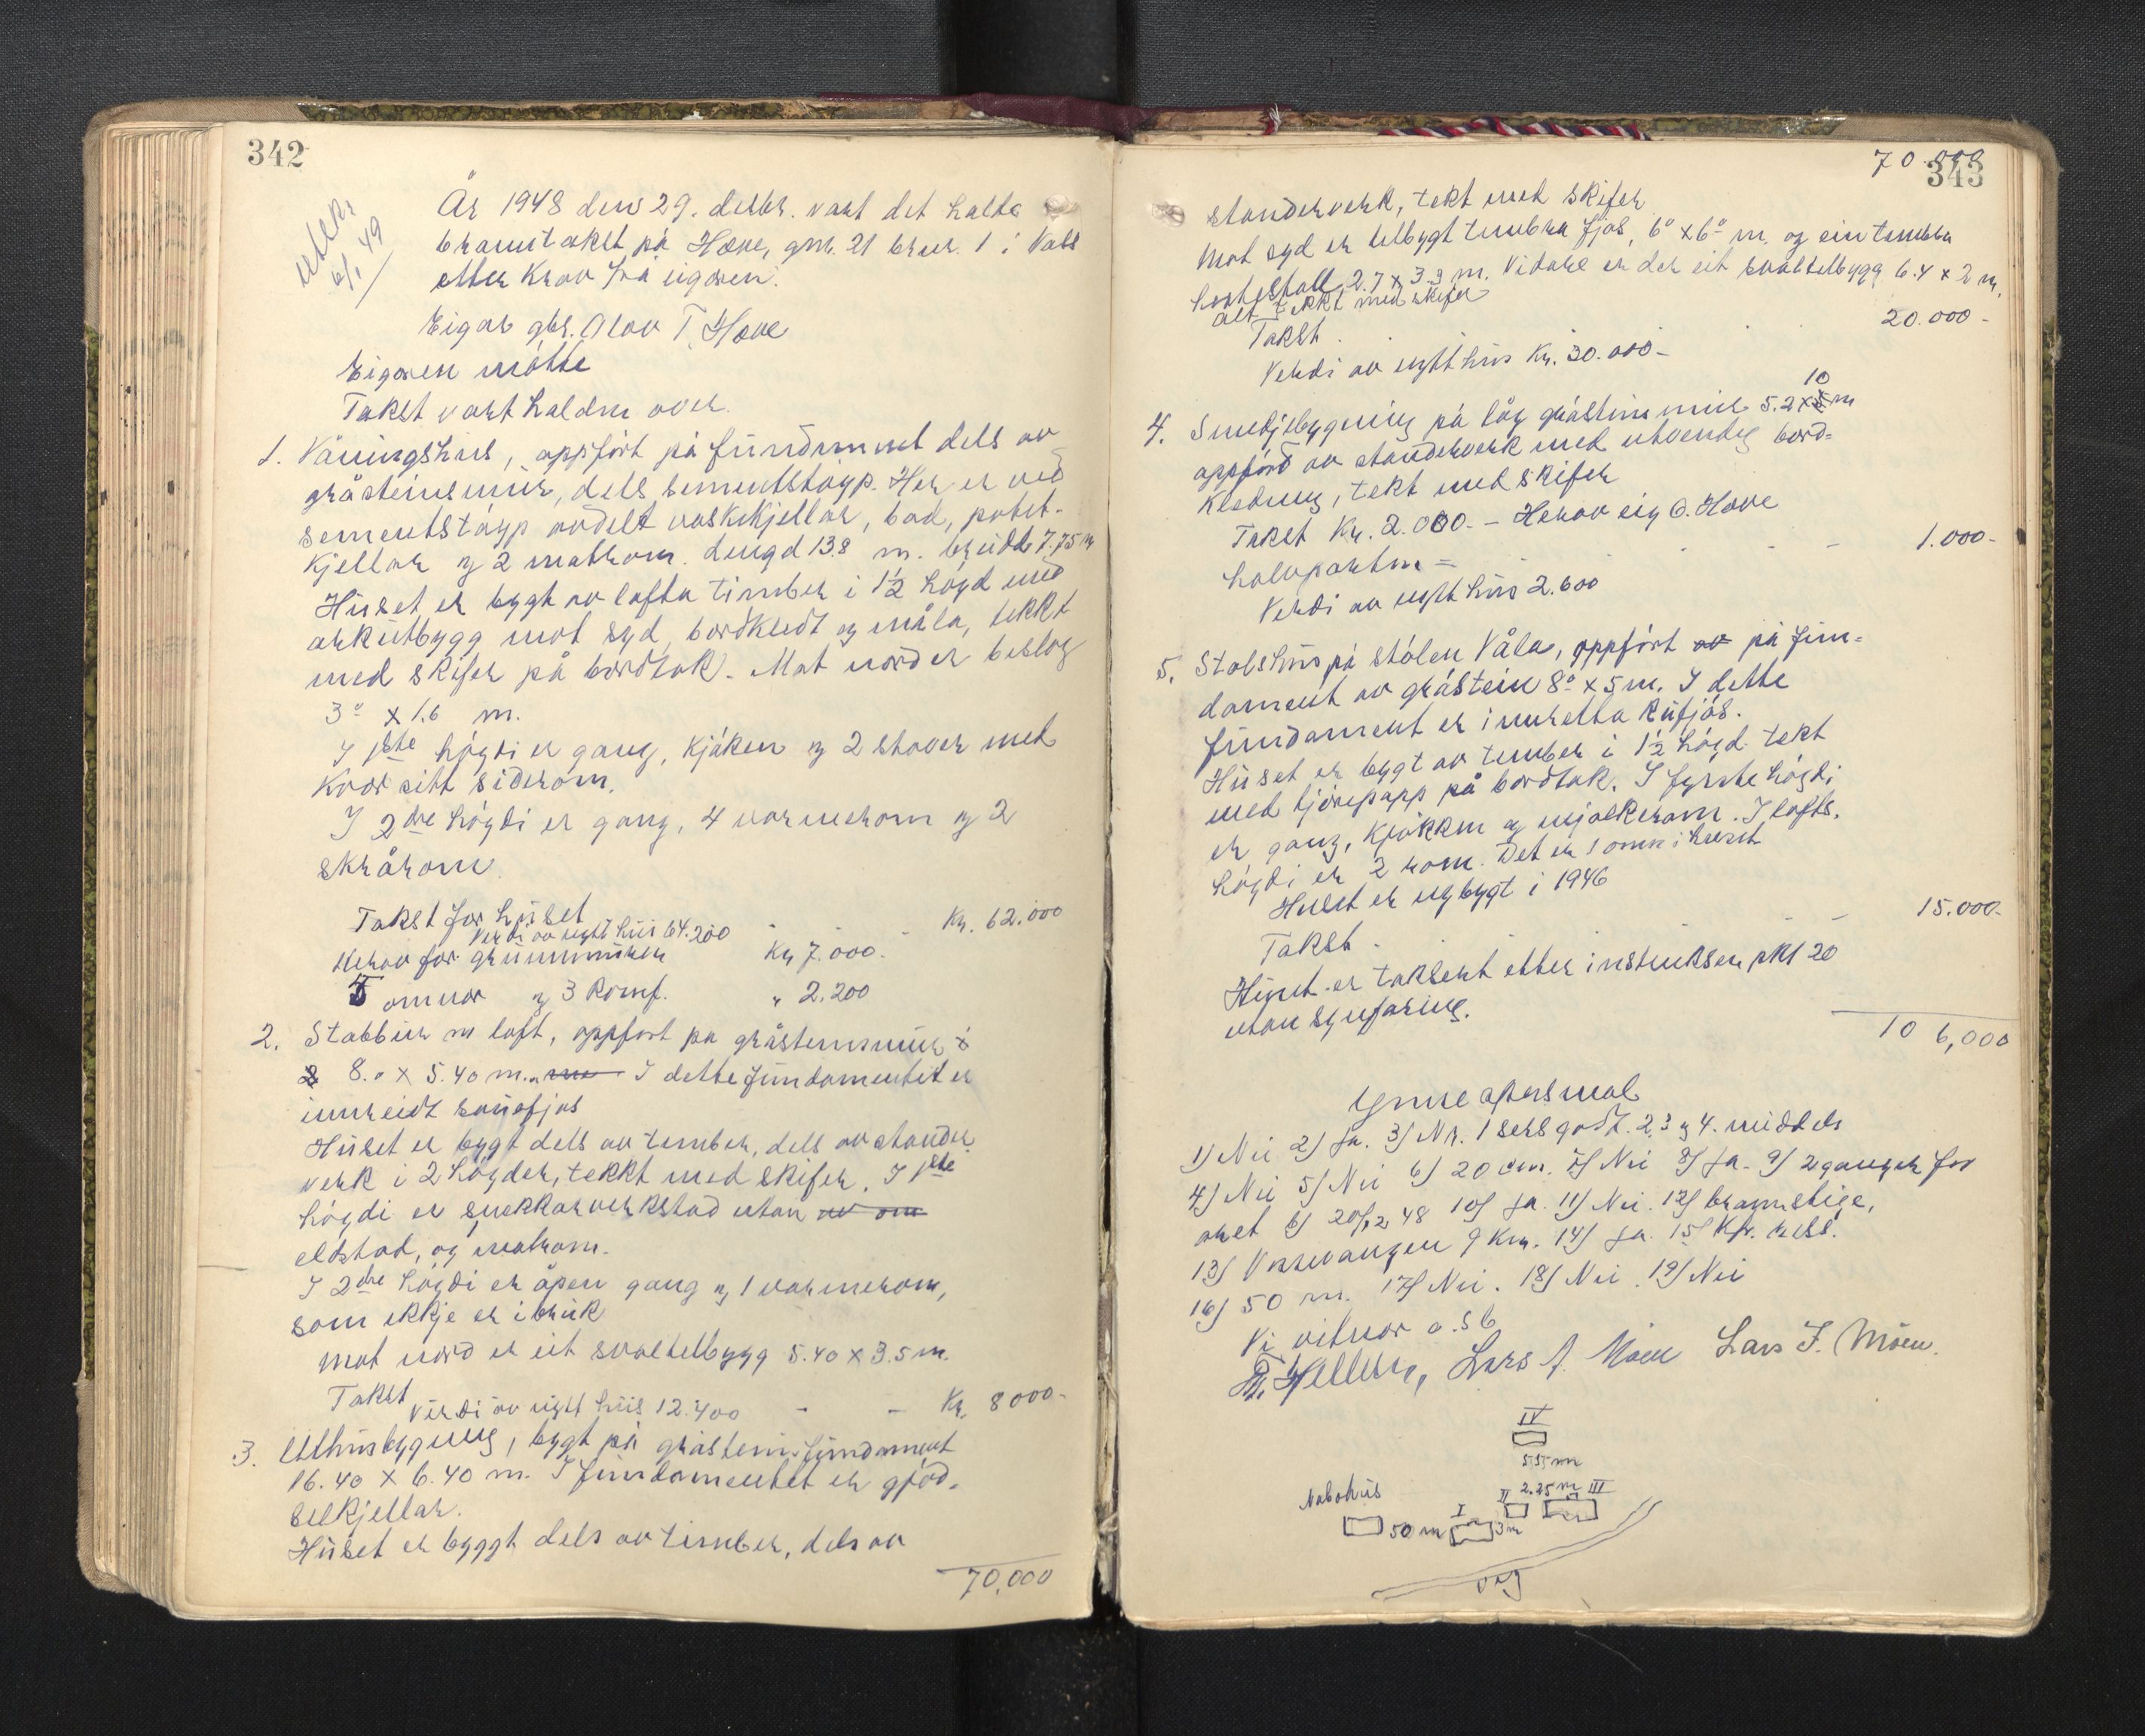 342
År 1948 den 29. desbr. vart det halde
branntakst på Hæve, gnr. 21 brnr. 1 i Voss
etter krav frå eigaren.
utskr.
6/1 49
Eigar gbr. Olav T. Hæve
Eigaren møtte
Takst vart halden over.
1. Våningshus, oppført på fundament dels av
gråsteinsmur, dels sementstøyp. Her er ved
sementstøyp avdelt vaskekjellar, bad, potet-
kjellar og 2 matrom. Lengd 13.8 m. breidde 7.75 m
Huset er bygt av lafta timber i 1½ høgd med
arkutbygg mot syd, bordkledt og måla, tekkt
med skifer på bordtak. Mot nord er beslag
3.0 x 1.6 m.
I 1ste høgdi er gang, kjøken og 2 stover med
kvar sitt siderom.
I 2dre høgdi er gang, 4 varmerom og 2
skrårom.
Takst for huset - - Kr. 62.000
Verdi av nytt hus 64.200
Herav for grunnmuren Kr 7.000.
5 omnar og 3 komf. " 2.200
2. Stabbur m loft, oppført på gråsteinsmur
8.0 x 5.40 m. I dette fundamentet er
innreidt sauefjos
Huset er bygt dels av timber, dels av stander-
verk i 2 høgder, tekkt med skifer. I 1ste
høgdi er snekkarverkstad utan av om
eldstad, og matrom.
I 2dre høgdi er åpen gang og 1 varmerom,
som ikkje er i bruk
Mot nord er eit svaltilbygg 5.40 x 3.5 m.
Takst - - Kr. 8000-
Verdi av nytt hus 12.400
3. Uthusbygning, bygt på gråsteinsfundament
16.40 x 6.40 m. I fundamentet er gjød-
selkjellar.
Huset er byggt dels av timber, dels av
70,000
70.000
343
standerverk, tekt med skifer
Mot syd er tilbygt timbra fjos, 6.0 x 6.0 m. og ein timbra
hestestall 2.7 x 3.3 m. Vidare er der eit svaltilbygg 6.4 x 2 m.
alt tekkt med skifer
Takst . . . 20.000-
Verdi av nytt hus Kr. 30.000-
4. Smedjebygning på låg gråsteinsmur 5.2 x 10 m
oppførd av standerverk med utvendig bord-
kledning, tekt med skifer
Takst Kr. 2.000.- Herav eig O. Hæve
halvparten = - - 1.000-
Verdi av nytt hus 2.600
5. Stølshus på stølen Våla, oppført av på fun-
dament av gråstein 8.0 x 5 m. I dette
fundament er innretta kufjøs.
Huset er bygt av timber i 1½ høgd tekt
med tjørepapp på bordtak. I fyrste høgdi
er gang, kjøkken og mjølkerom. I lofts-
høgdi er 2 rom. Det er 1 omn i huset
Huset er nybygt i 1946
Takst - - - 15.000-
Huset er taksert etter instruksen pkt 20
utan synfaring.
106,000
Ymse spursmål
1) Nei 2) Ja. 3) Nr. 1 sers godt. 2, 3 og 4. middels
4) Nei 5) Nei 6) 20 cm. 7) Nei 8) Ja. 9) 2 gonger for
året 20/12 48 10) Ja. 11) Nei. 12) brannstige,
13) Vossevangen 9 km. 14) Ja. 15) Kfr. riss.
16) 50 m. 17) Nei. 18) Nei. 19) Nei
Vi vitnar o.s.b
Lars J. Møen.
IV
55 m
Nabohus
50 m
I
3 m
II
2.25 m
III
Veg